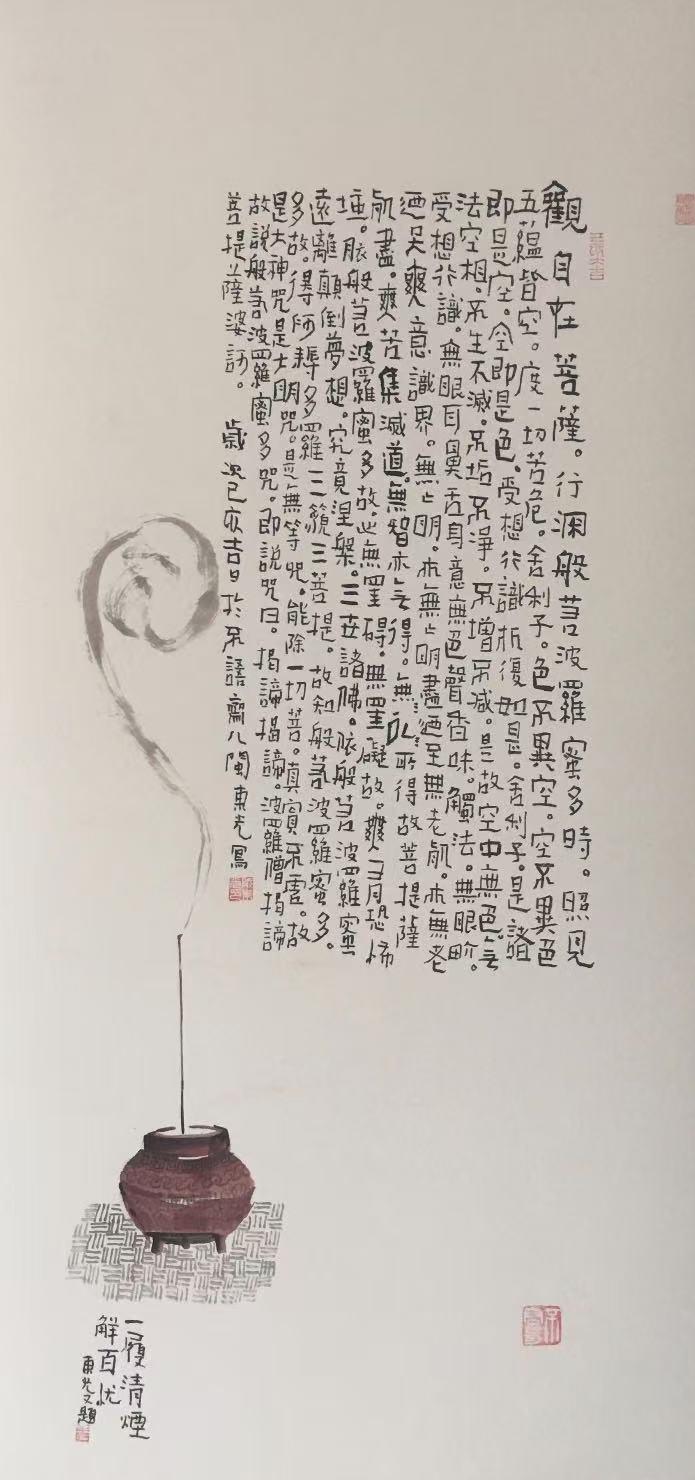 觀自在菩薩。行深般若波羅蜜多時。照見
五蘊皆空。度一切苦危。舍利子。色不異空。空不異色
即是空。空即是色。受想行識亦復如是。舍利子。是諸
法空相。不生不滅。不垢不淨。不增不減。是故空中無色。無
受想行識。無眼耳鼻舌身意無色聲香味。觸法。無眼界。
迺至無意識界。無無明。亦無無明盡迺至無老死。亦無老
死盡。無苦集滅道。無智亦無得。無以所得故菩提薩
埵。依般若波羅蜜多故。心無罣碍。無罣礙故。無有恐怖
遠離顛倒夢想。究竟涅槃。三世諸佛。依般若波羅蜜
多故。得阿耨多羅三藐三菩提。故知般若波羅蜜多。
是大神咒是大明咒。是無等咒。能除一切苦。真實不虛。故
故說般若波羅蜜多咒。即說咒曰。揭諦揭諦。波羅僧揭諦
菩提薩婆訶。歲次己亥吉日於不語齋八閩東光寫
一履清煙
解百忧
東光又題